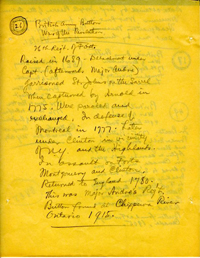 27
British Army Button
War of the Revolution
26th Regt. of Foot
Raised in 1689. Stationed under
Capt. (afterwards Major Andre)
Garrisoned St. Johns on the Sorrel
when captured by Arnold in
1775. Were paroled and
exchanged. In defense of
Montreal in 1777. Later
under Clinton in vicinity
of N.Y. and the Highlands.
In assault on Forts
Montgomery and Clinton.
Returned to England 1780.
This was Major Andre's Regt.
Button found at Chippewa River
Ontario 1915.